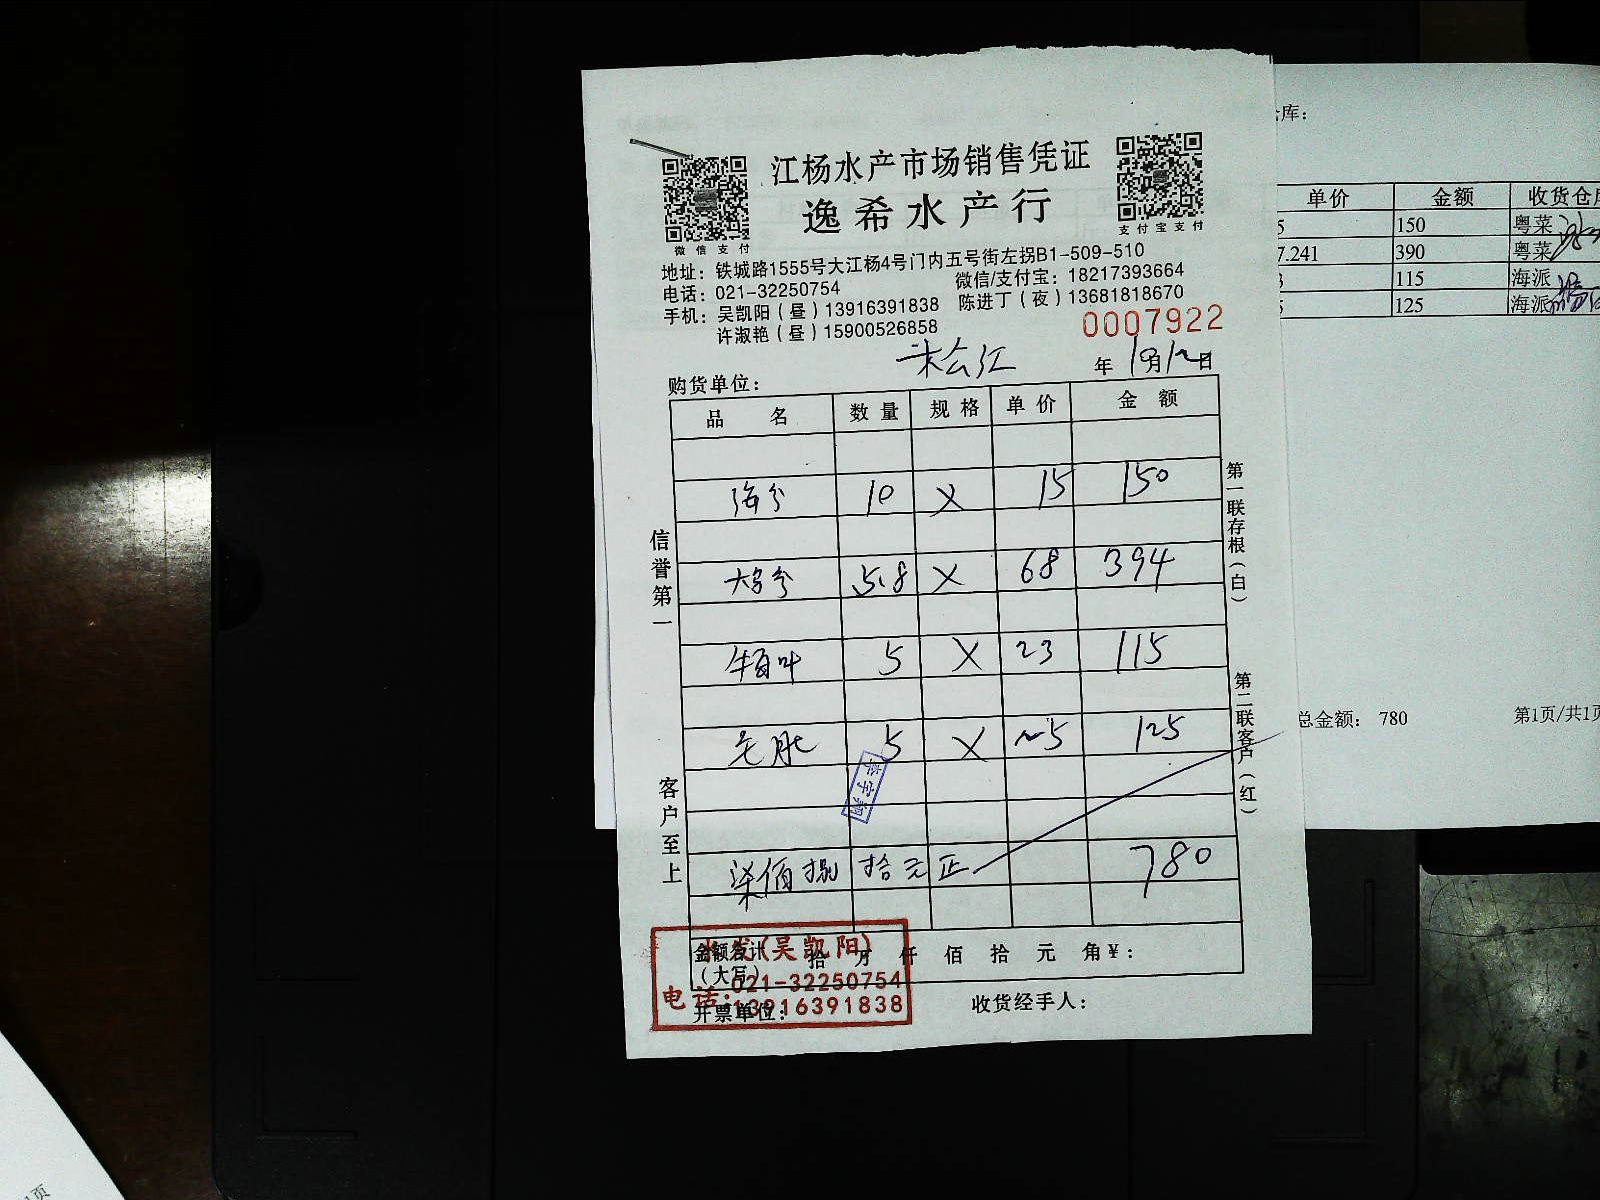 江杨水产市场销售凭证
逸希水产行
微信支付
支付宝支付
地址：铁城路1555号大江杨4号门内五号街左拐B1-509-510
电话：021-32250754 微信/支付宝：18217393664
手机：吴凯阳（昼）13916391838 陈进丁（夜）13681818670
许淑艳（昼）15900526858
0007922
购货单位：
年 10月12日
品名 数量 规格 单价 金额
10 X 15 150
5.8 X 68 394
牛百叶 5 X 23 115
毛肚 5 X 25 125
柒佰捌拾元正 780
金额合计（大写） 拾 万 仟 佰 拾 元 角 ¥：
开票单位： 收货经手人：
(吴凯阳)
021-32250754
电话:13916391838
李宇翔
信誉第一
客户至上
第一联存根（白）
第二联客户（红）
库：
单价 金额 收货仓库
5 150 粤菜
7.241 390 粤菜
3 115 海派
5 125 海派
总金额： 780 第1页/共1页
页